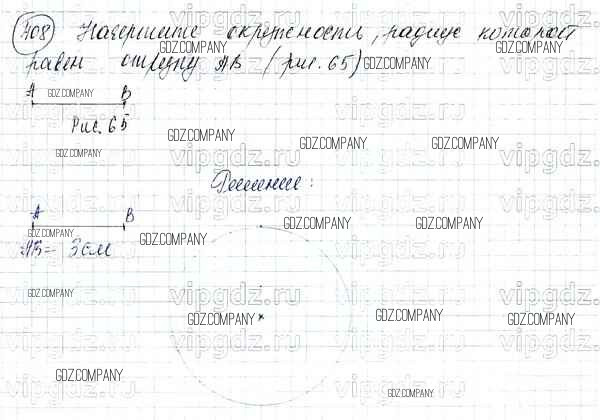 408 Начертите окружность, радиус которой
равен отрезку АВ (рис. 65)
А В
Рис. 65
Решение:
А В
АВ = 3 см
GDZ.COMPANY
vipgdz.ru